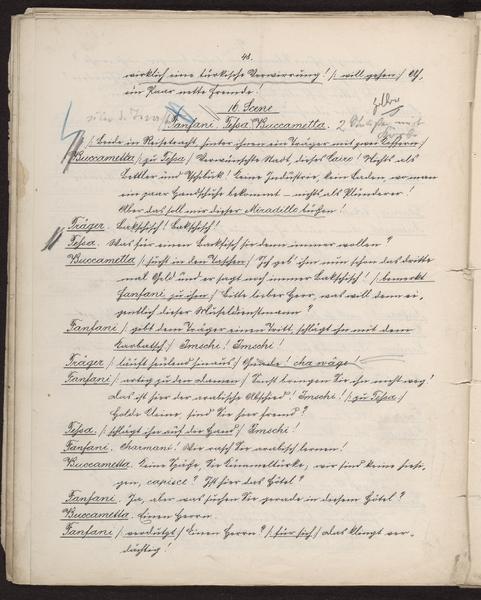 48.
wirklich eine türkische Verwirrung! /: will gehen :/ Ah,
ein Paar nette Fremde!
16. Scene
Fanfani. Tessa. Buccametta. 2
/: Beide in Reisetracht, hinter ihnen ein Träger mit zwei Koffern :/
Buccametta /: zu Tessa :/ Verwünschte Stadt, dieses Cairo! Nichts als
Bettler und Tschibuk! Keine Industrie, kein Laden, wo man
ein paar Handschuhe bekommt – nichts als Plünderer!
Aber das soll mir dieser Miradillo büßen!
Träger. Bakschisch! Bakschisch!
Tessa. Was für einen Backfisch sie denn immer wollen?
Buccametta /: sucht in den Taschen :/ Ich geb' ihm nun schon das dritte
mal Geld und er sagt noch immer Bakschisch! /: bemerkt
Fanfani zu ihm :/ Bitte lieber Herr, was will denn ei-
gentlich dieser Museldienstmann?
Fanfani /: gibt dem Träger einen Tritt, schlägt ihn mit dem
Karbatsch :/ Imschi! Imschi!
Träger /: läuft heulend hinaus :/
Fanfani /: artig zu den Damen :/ Sonst bringen Sie ihn nicht weg!
Das ist hier der arabische Abschied! Imschi! /: zu Tessa :/
Holde Kleine, sind Sie hier fremd?
Tessa. /: schlägt ihn auf die Hand :/ Imschi!
Fanfani. Charmant! Wie rasch Sie arabisch lernen!
Buccametta. Keine Späße, Sie Lümmeltürke, wir sind keine hiesi-
gen, capisce? Ist hier das Hôtel?
Fanfani. Ja, aber was suchen Sie gerade in diesem Hôtel?
Buccametta. Einen Herrn.
Fanfani /: verdutzt :/ Einen Herrn? /: für sich :/ Das klingt ver-
dächtig!